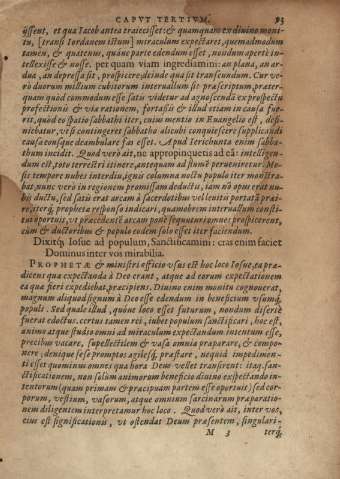 CAPVT TERTIVM. 93
ijssent, et qua Iacob antea traiecisset: & quamquam ex diuino moni
tu, [trans Iordanem istum] miraculum expectares, quemadmodum
tamen, & quatenus, quáue parte edendum esset, nondum aperte in-
tellexisse & nosse. per quam viam ingrediamini: an plana, an ar-
dua, an depressa sit, prospicere, deinde qua sit transeundum. Cur ve-
rò duorum millium cubitorum interuallum sit præscriptum, præter-
quam quòd commodum esse satis videtur ad agnoscendū ex prospectu
profectionis & via rationem, fortassis & illud etiam in causa fue-
rit, quòd eo spatio sabbathi iter, cuius mentio in Euangelio est, defi-
niebatur, vt si contingeret sabbatho alicubi conquiescere supplicandi
causa eousque deambulare fas esset. Apud Ierichunta enim sabba-
thum incidit. Quod verò ait, ne appropinquetis ad eā: intelligen-
dum est, toto terrestri itinere, antequam ad flumē peruenirent. Ne-
sis tempore nubes interdiu, ignis columna noctu populo iter monstra-
bat, nunc verò in regionem promissam deductis, iam nō opus erat nu-
bis ductu, sed satis erat arcam à sacerdotibus vel leuitis portatā præi-
re, sterq́; propheta responso indicari, quamobrem interuallum consti-
tui oportuit, vt præcedentē arcam ponè sequeretur omnes: prospicerent,
eum & ductoribus & populo eodem solo esset iter faciendum.
Dixitq́; Iosue ad populum, Sanctificamini: cras enim faciet
Dominus inter vos mirabilia.
PROPHETAE & ministri officio vsus est hoc loco Iosue, ea præ-
dicens quæ expectanda à Deo erant, atque ad eorum expectationem
ea quæ fieri expediebat, præcipiens. Diuino enim monitu cognouerat,
magnum aliquod signum à Deo esse edendum in beneficium vsumq́;
populi. Sed quale illud, quóue loco esset futurum, nondum diserte
fuerat edoctus. certus tamen rei, iubet populum sanctificari, hoc est,
animo atque studio omni ad miraculum expectandum intentum esse,
precibus vacare, supellectilem & vasa omnia præparare, & compo-
nere, denique sese promptos agilesq́; præstare, nequid impedimen-
ti esset quominus omnes qua hora Deus vellet transirent: itaq; san-
ctificationem, non solùm animorum beneficio diuino expectando in-
tentorum (quam primam & præcipuam partem esse oportuit) sed cor-
porum, vestium, vasorum, atque omnium sarcinarum præparatio-
nem diligentem interpretamur hoc loco. Quod verò ait, inter vos,
eius est significationis, vt ostendat Deum præsentem, singulari-
M 3 terq́;